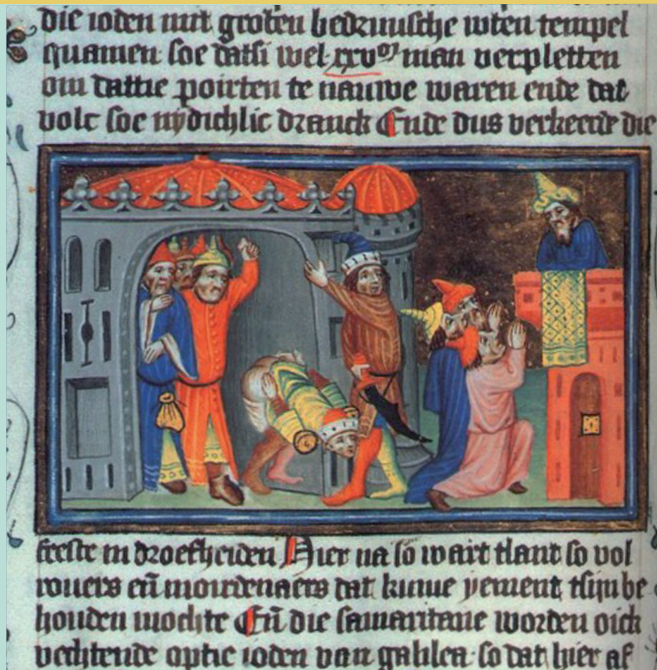 die ioden mit groten bedruussche wten tempel
quamen soe datsi wel xxvᵐ man verpletten
om dattie poirten te nauwe waren ende dat
volc soe nydichlic dranck Ende dus verkeerde die
feeste in droefheiden Hier na so wart tlant so vol
rovers eñ moirdenaers dat kume yement tsijn be
houden mochte Eñ die samaritane worden oick
vechtende optie ioden van galilea so dat hier af